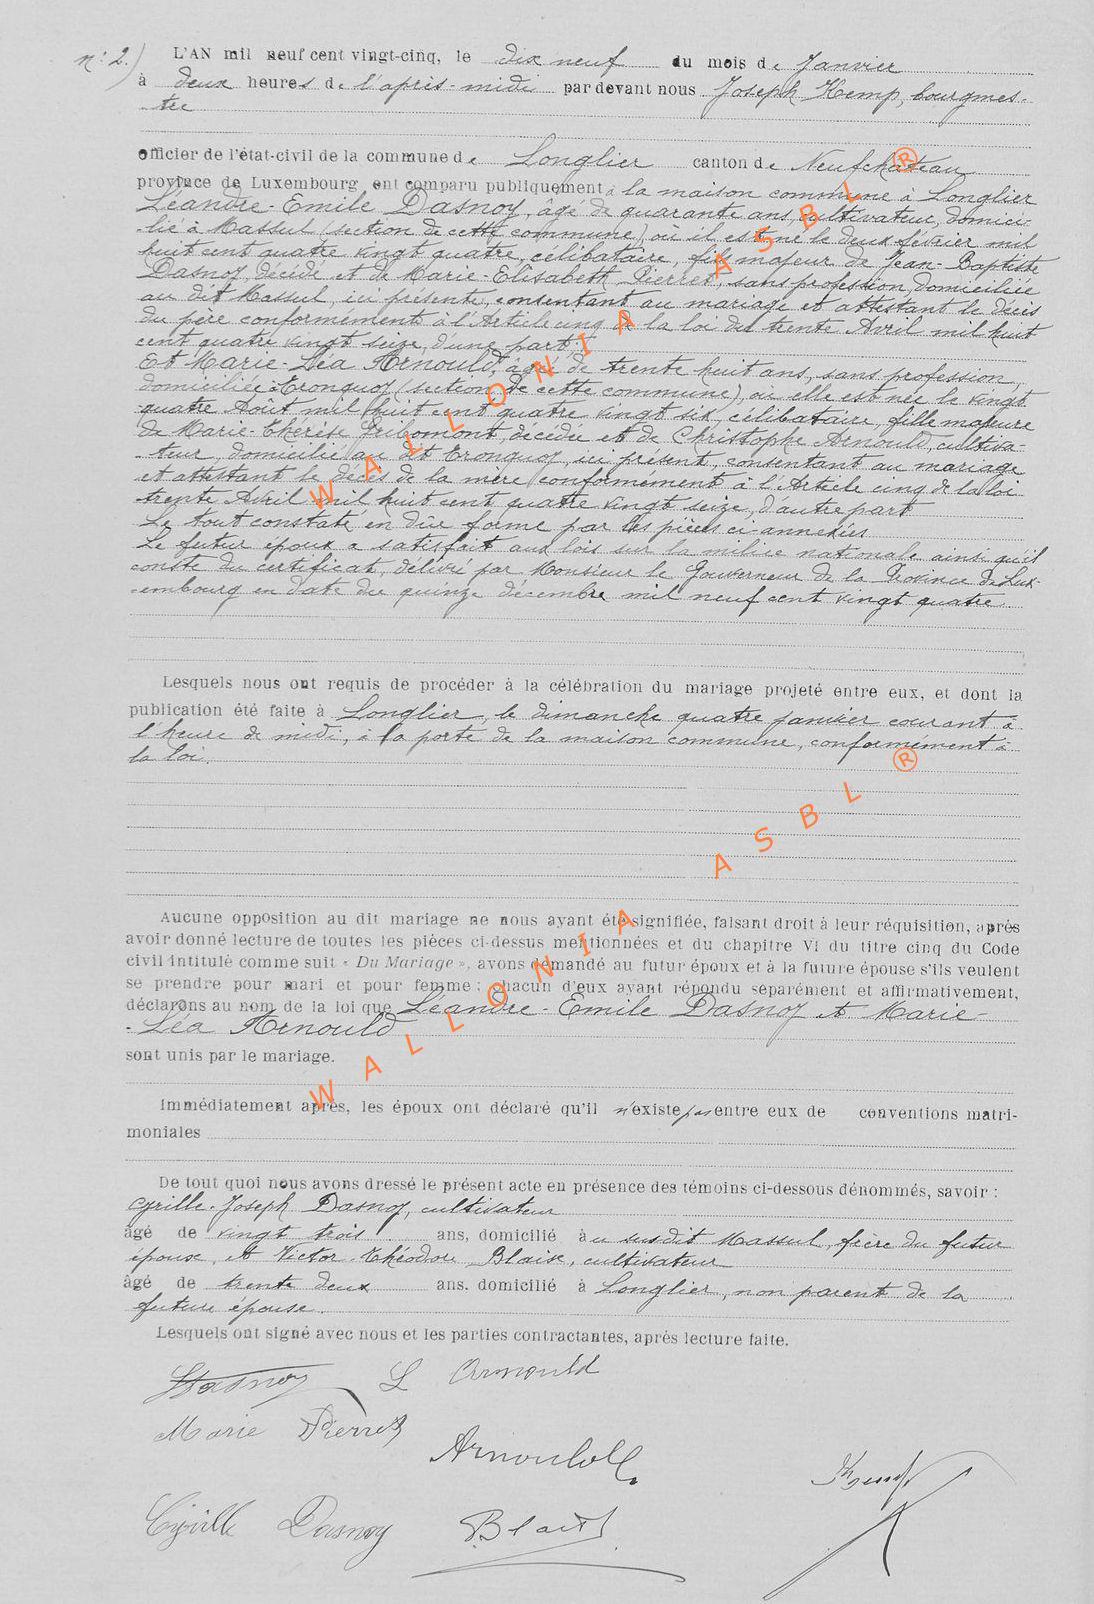 n: 2.) L'AN mil neuf cent vingt-cinq, le dix neuf du mois de Janvier
à deux heures de l'après-midi par devant nous Joseph Kemp, bourgmes-
-tre
officier de l'état-civil de la commune de Longlier canton de Neufchateau
province de Luxembourg ont comparu publiquement à la maison commune à Longlier
Léandre-Emile Dasnoy, âgé de quarante ans, cultivateur, domici-
-lié à Massul (section de cette commune), où il est né le deux février mil
huit cent quatre vingt quatre, célibataire, fils majeur de Jean-Baptiste
Dasnoy, décédé et de Marie-Elisabeth Pierret, sans profession, domiciliée
au dit Massul, ici présente, consentant au mariage et attestant le décès
du père conformément à l'Article cinq de la loi du trente Avril mil huit
cent quatre vingt seize, d'une part;
Et Marie-Léa Arnould, âgée de trente huit ans, sans profession,
domiciliée à Tronquoy (section de cette commune), où elle est née le vingt
quatre Août mil huit cent quatre vingt six, célibataire, fille majeure
de Marie-Thérèse Gribomont, décédée et de Christophe Arnould, cultiva-
-teur, domicilié au dit Tronquoy, ici présent, consentant au mariage
et attestant le décès de la mère conformément à l'Article cinq de la loi
trente Avril mil huit cent quatre vingt seize, d'autre part
Le tout constaté en due forme par les pièces ci-annexées
Le futur époux a satisfait aux lois sur la milice nationale ainsi qu'il
conste du certificat, délivré par Monsieur le Gouverneur de la Province de Lux-
-embourg en date du quinze décembre mil neuf cent vingt quatre.
Lesquels nous ont requis de procéder à la célébration du mariage projeté entre eux, et dont la
publication été faite à Longlier, le dimanche quatre janvier courant à
l'heure de midi, à la porte de la maison commune, conformément à
la loi.
Aucune opposition au dit mariage ne nous ayant été signifiée, faisant droit à leur réquisition, après
avoir donné lecture de toutes les pièces ci-dessus mentionnées et du chapitre VI du titre cinq du Code
civil intitulé comme suit « Du Mariage », avons demandé au futur époux et à la future épouse s'ils veulent
se prendre pour mari et pour femme : chacun d'eux ayant répondu séparément et affirmativement,
déclarons au nom de la loi que Léandre-Emile Dasnoy et Marie-
-Léa Arnould
sont unis par le mariage.
Immédiatement après, les époux ont déclaré qu'il n'existe pas entre eux de conventions matri-
moniales
De tout quoi nous avons dressé le présent acte en présence des témoins ci-dessous dénommés, savoir :
Cyrille-Joseph Dasnoy, cultivateur
âgé de vingt trois ans, domicilié au susdit Massul, frère du futur
époux, et Victor-Théodore Blaise, cultivateur
âgé de trente deux ans. domicilié à Longlier, non parent de la
future épouse.
Lesquels ont signé avec nous et les parties contractantes, après lecture faite.
Dasnoy L Arnould
Marie Pierret
Arnould
Kemp
Cyrille Dasnoy Blaise
WALLONIA ASBL ®
WALLONIA ASBL ®